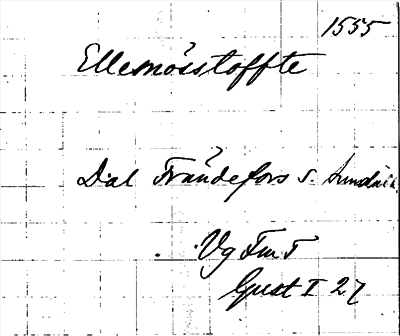 1555
Ellemósstoffte
Dal Frändefors s. Sundals
Vg Fm T
Gust I 27